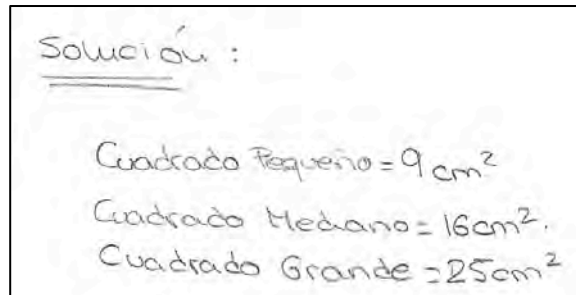 Solución :
Cuadrado Pequeño = 9 cm²
Cuadrado Mediano = 16 cm².
Cuadrado Grande = 25 cm²